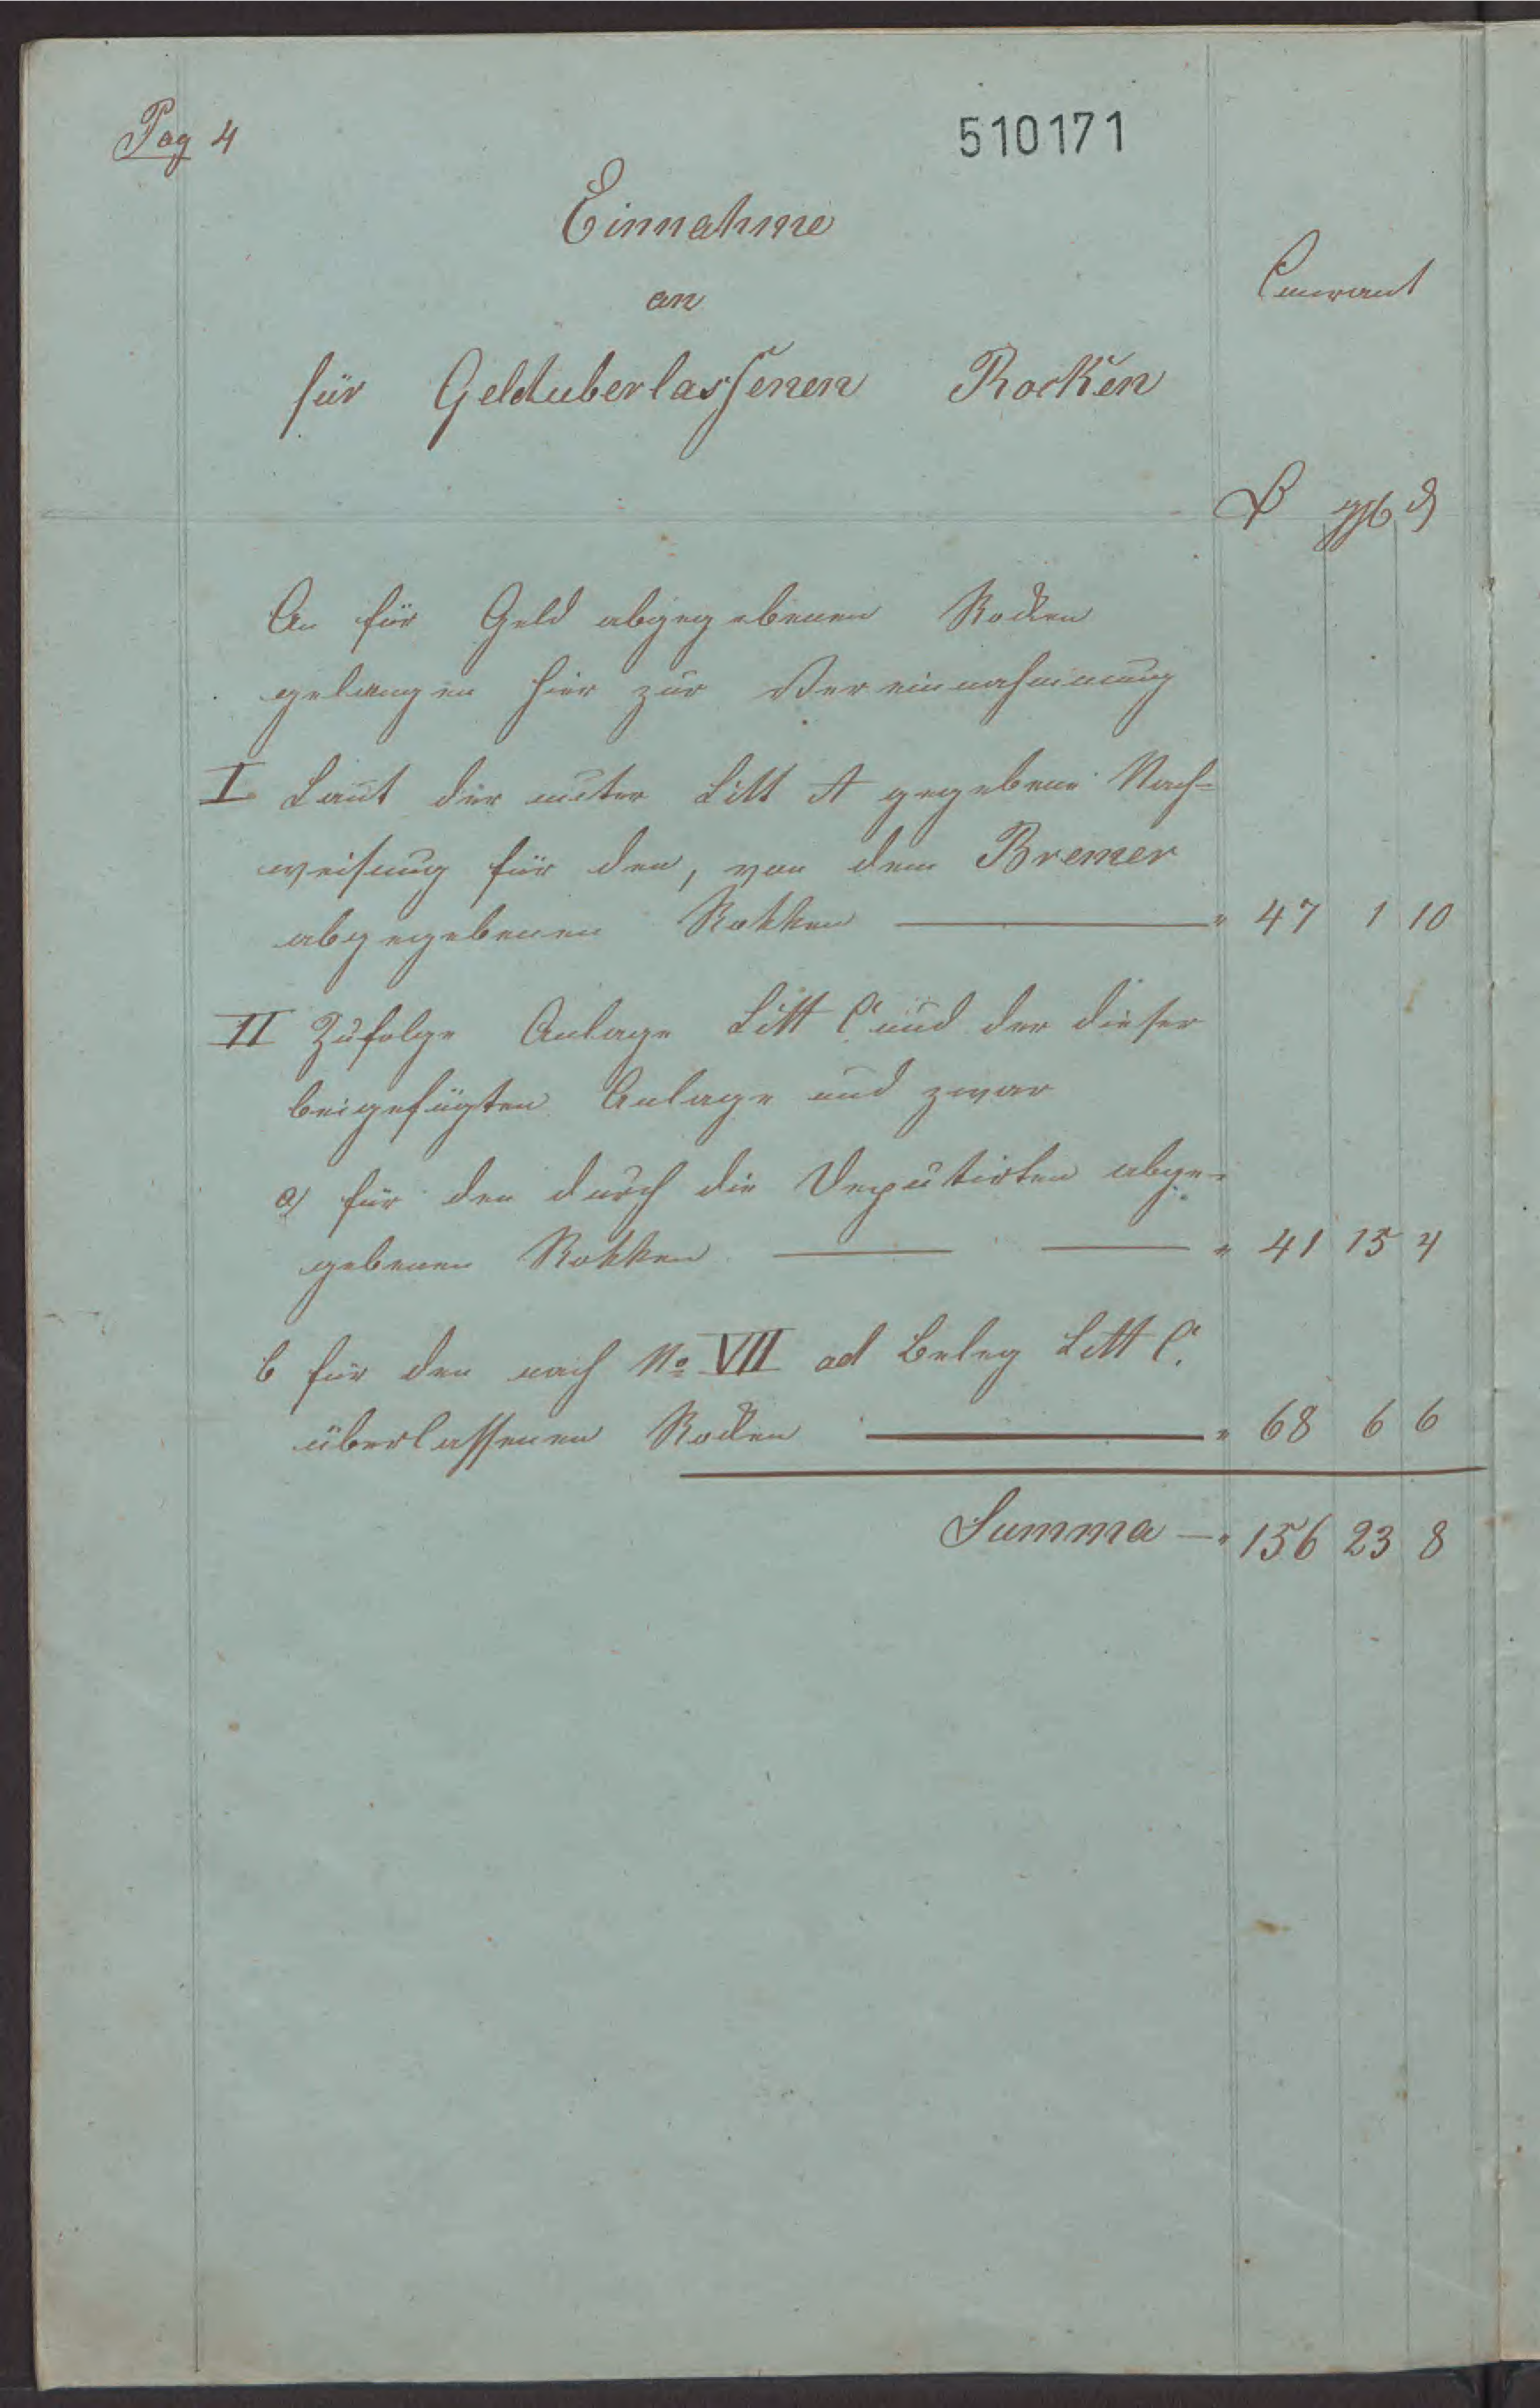 Pag 4
510171
Einnahme
an
Courant
für Geldüberlassenen Rocken
ggl ₰
An für Geld abgegebenen Rocken
gelangen hier zur Vereinnahmung
I. Laut der unter Litt A gegebene Nach=
weisung für den, von dem Bremer
abgegebenen Rokken — " 47 1 10
II Zufolge Anlage Litt C und der dieser
beigefügten Anlage und zwar
a) für den durch die Deputirten abge=
gebenen Rokken — — " 41 15 4
b für den nach No VII ad Beleg Litt C.
überlassenen Rocken — " 68 6 6
Summa — " 156 23 8